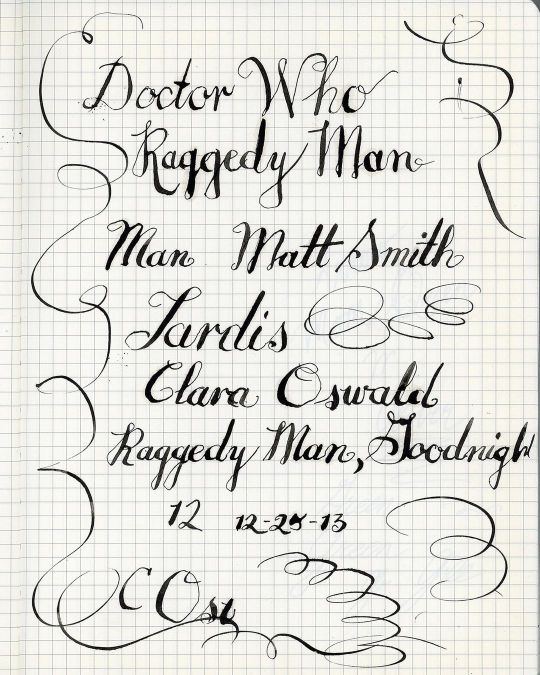 Doctor Who
Raggedy Man
Man Matt Smith
Tardis
Clara Oswald
Raggedy Man, Goodnigh
12 12-25-13
C Osw